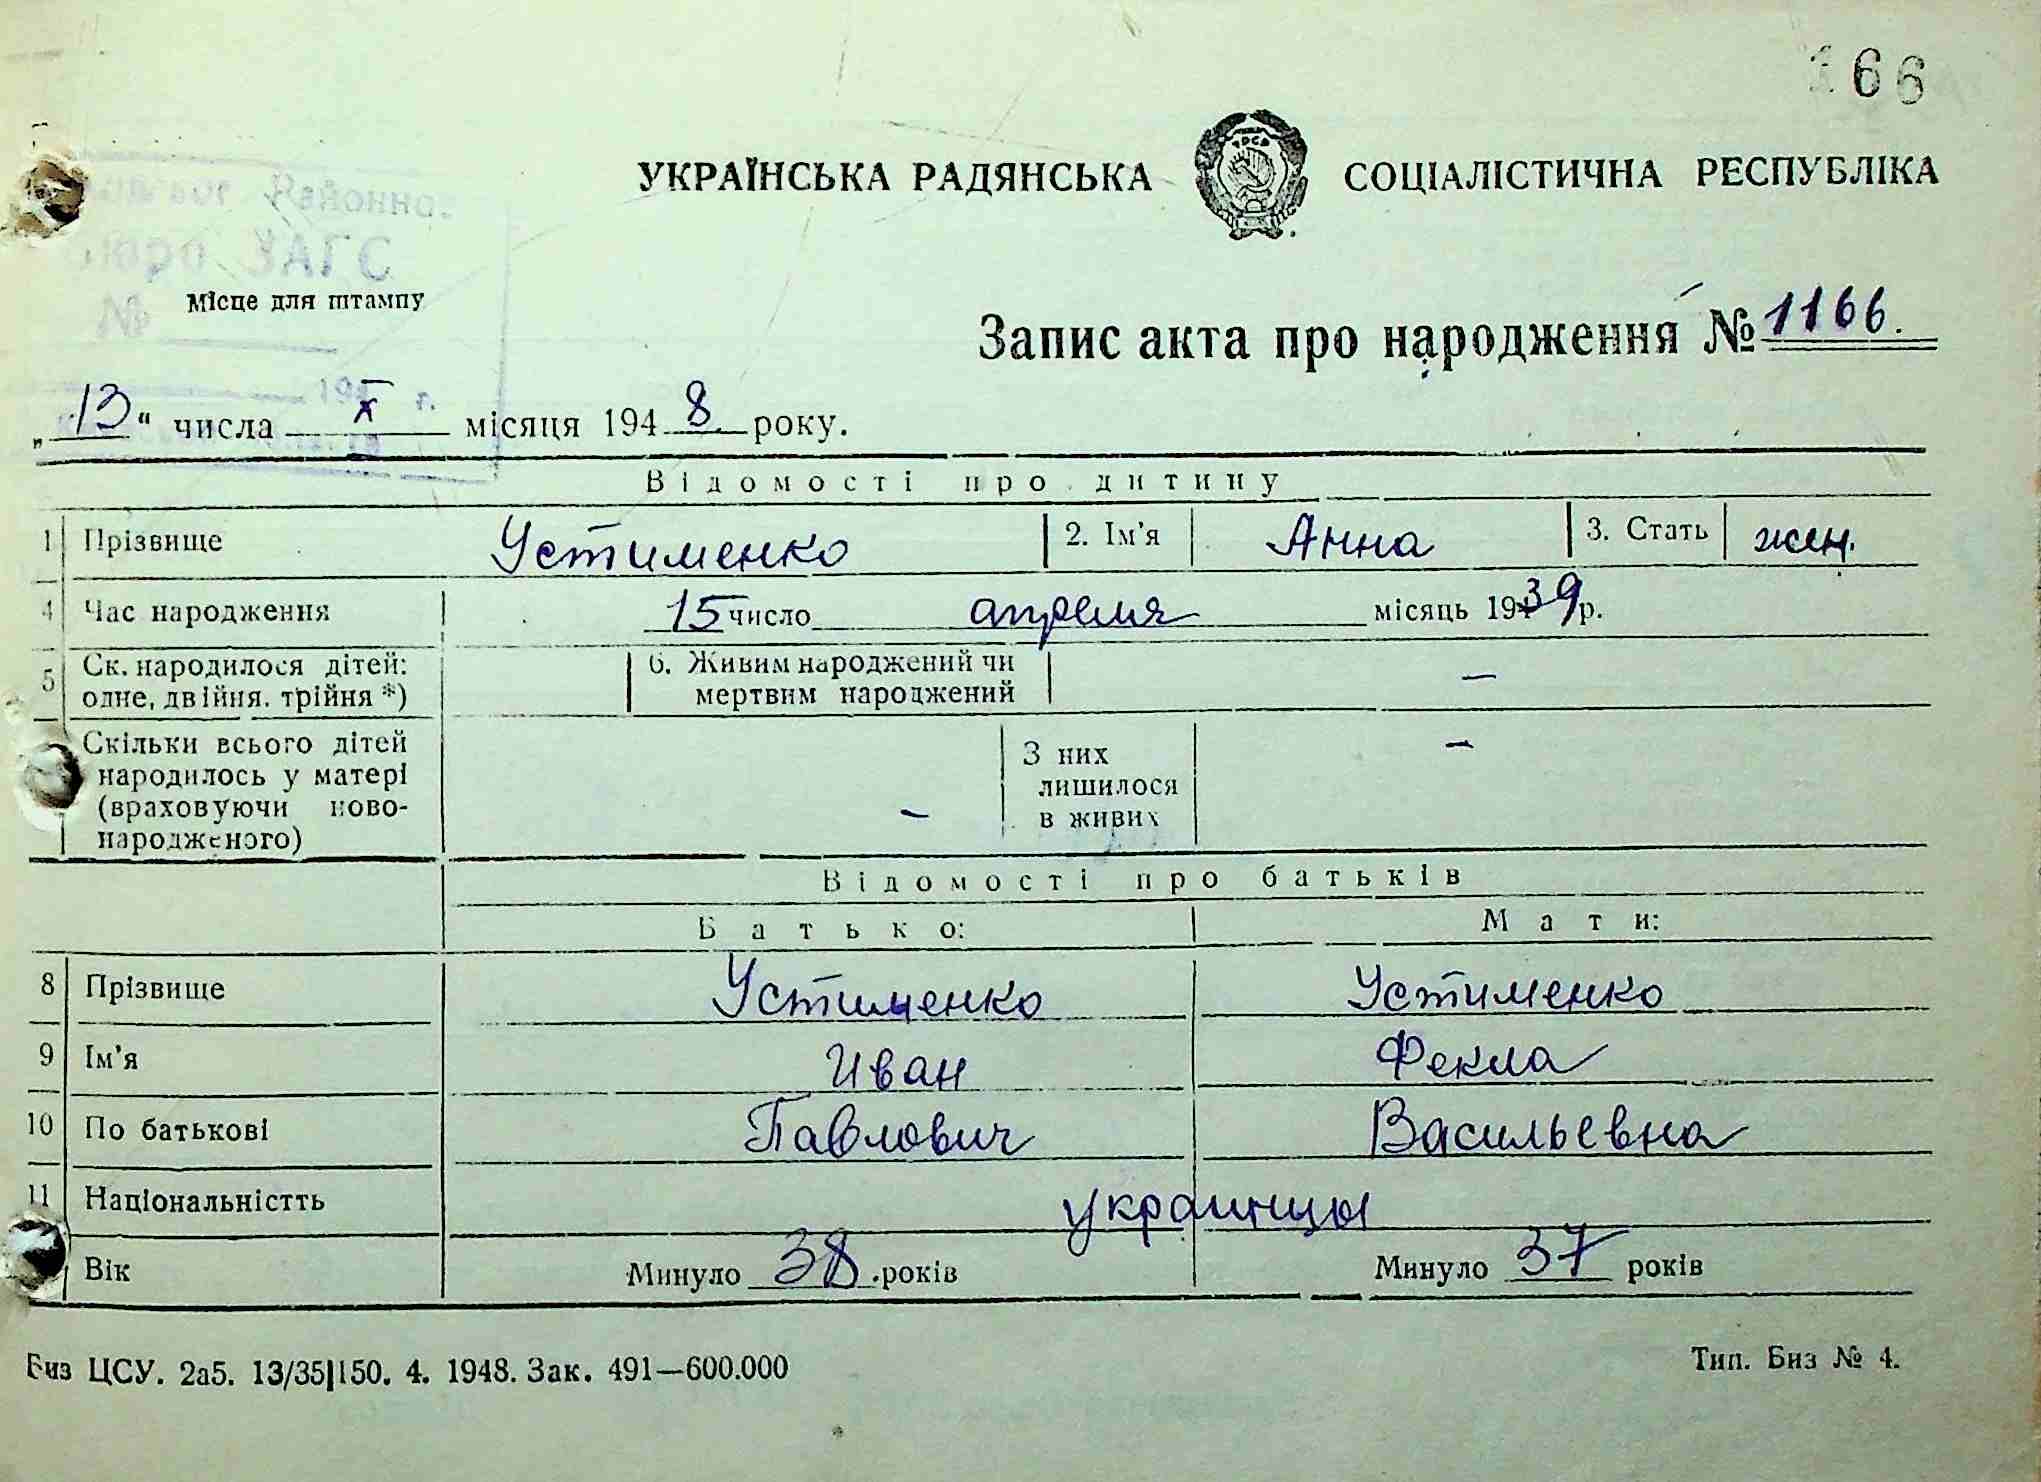 66
УКРАЇНСЬКА РАДЯНСЬКА СОЦІАЛІСТИЧНА РЕСПУБЛІКА
Районно
бюро ЗАГС
№
Місце для штампу
Запис акта про народження № 1166.
„13“ числа X місяця 1948 року.
Відомості про дитину
1 Прізвище Устименко 2. Ім'я Анна 3. Стать жен.
4 Час народження 15 число апреля місяць 1939 р.
5 Ск. народилося дітей: одне, двійня, трійня *) 6. Живим народжений чи мертвим народжений —
Скільки всього дітей народилось у матері (враховуючи ново-народженого) — З них лишилося в живих —
Відомості про батьків
Батько: Мати:
8 Прізвище Устименко Устименко
9 Ім'я Иван Фекла
10 По батькові Павлович Васильевна
11 Національністть украинцы
Вік Минуло 38 років Минуло 37 років
Биз ЦСУ. 2а5. 13/35|150. 4. 1948. Зак. 491—600.000 Тип. Биз № 4.